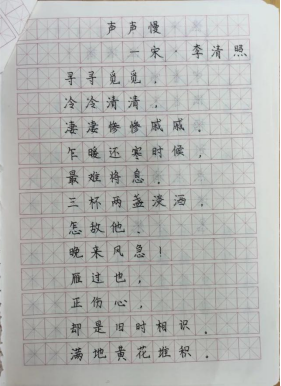 声声慢
一宋·李清照
寻寻觅觅，
冷冷清清，
凄凄惨惨戚戚．
乍暖还寒时候，
最难将息．
三杯两盏淡酒，
怎敌他．
晚来风急！
雁过也，
正伤心，
却是旧时相识．
满地黄花堆积．